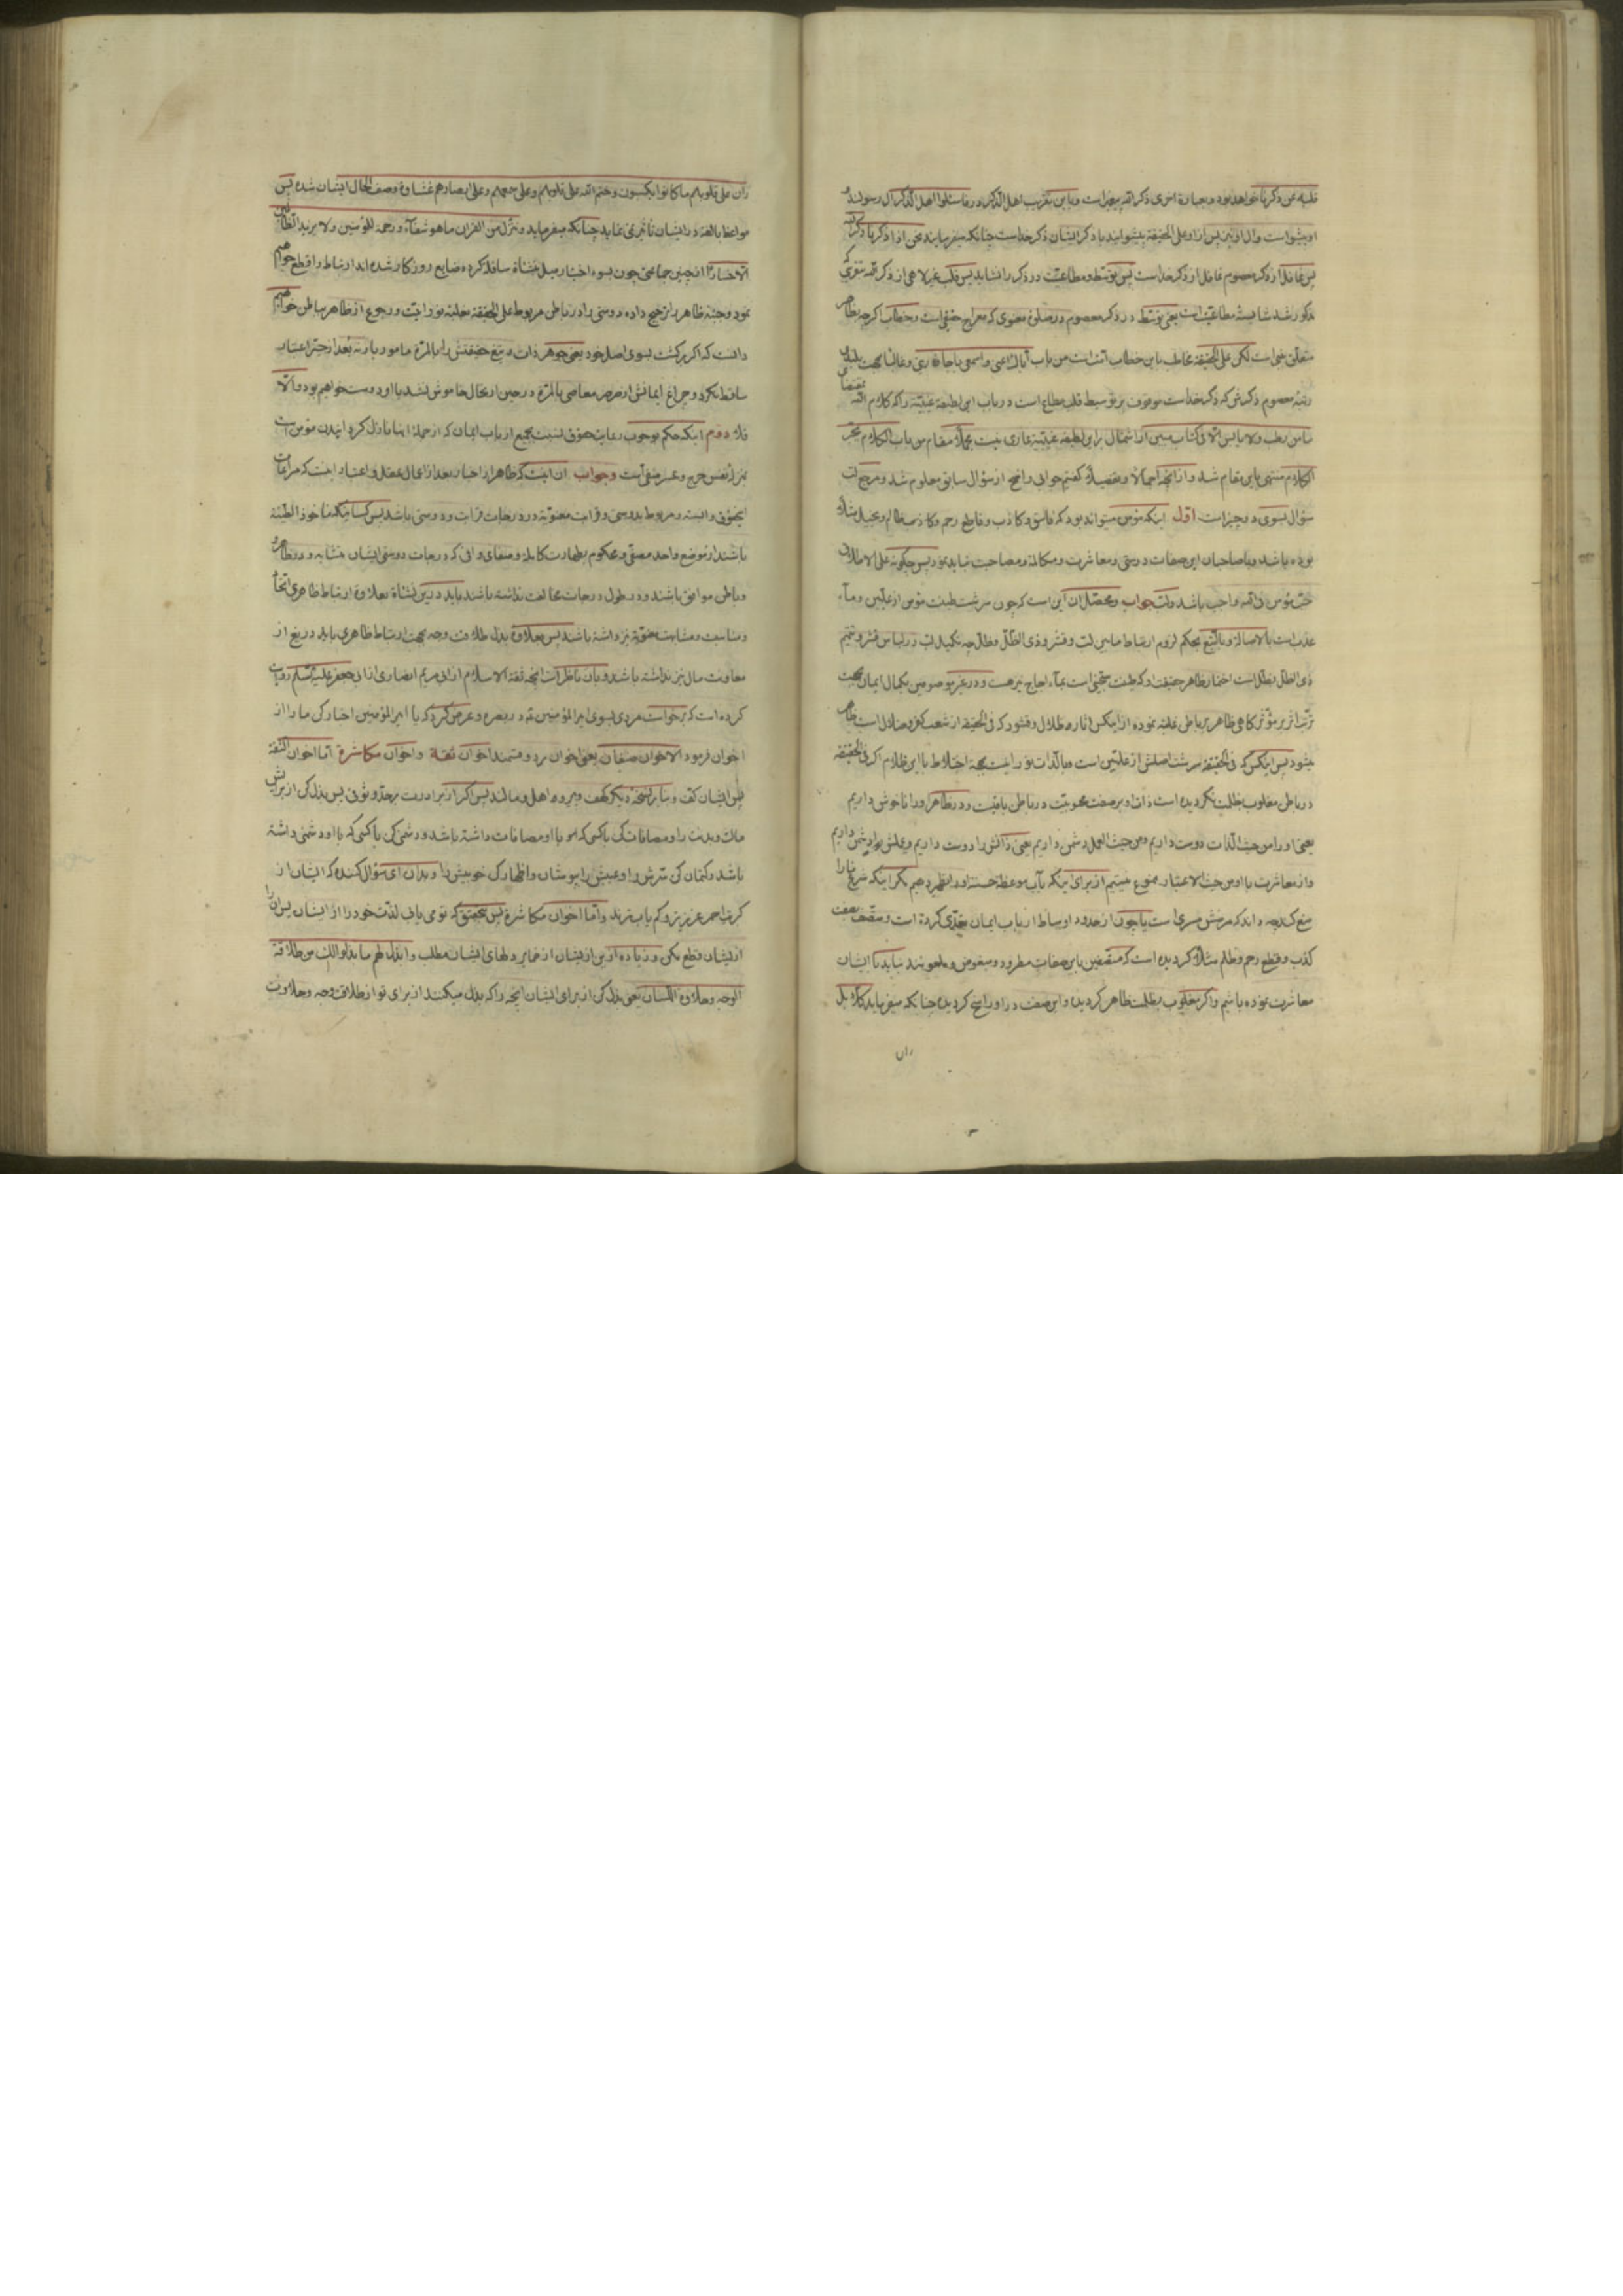 قلبه عن ذکرنا خواهد بود و بعبارة اخری ذکر الله پیغمبر است و باین تقریب اهل الذکر در فاسئلوا اهل الذکر آل رسولند و
او پیشواست و آل او نیز پس از او علی الحقیقة پیشوایند یا ذکر ایشان ذکر خداست چنانکه میفرمایند نحن اذا ذکرنا ذکر الله
پس غافل از ذکر معصوم غافل از ذکر خداست پس توسط و مطاعیت در ذکر را نشاید پس قلب غیر لاهی از ذکر الله بنحوی که
مذکور شد شایسته مطاعیت است یعنی توسط در ذکر معصوم در صلوة معنوی که معراج حقیقی است و خطاب اگرچه بظاهر
متعلق بنبی است لکن علی الحقیقة مخاطب باین خطاب امت است من باب ایاک اعنی و اسمعی یا جارة
رتبه معصوم ذکرش که ذکر خداست موقوف بر توسیط قلب مطاع است در باب این لطیفه غیبیه را که کلام الله
ما من رطب و لا یابس الا فی کتاب مبین از اشتمال بر این لطیفه غیبیه عاری نیست مجملا مقام من باب الکلام یجر
الکلام منتهی باین مقام شد و از آنچه اجمالا و تفصیلا گفتیم جوابی واضح از سؤال سابق معلوم شد و مرجع لب
سؤال بسوی دو چیز است اول اینکه مؤمن میتواند بود که فاسق و کاذب و قاطع رحم و کاذب و ظالم و بخیل مثلا
بوده باشد و با صاحبان این صفات دوستی و معاشرت و مکالمه و مصاحبت نباید نمود پس چگونه علی الاطلاق
حب مؤمن فی الله واجب باشد و لب جواب و محصل ان این است که چون سرشت طینت مؤمن از علیین و ماء
عذب است بالاصالة و بالتبع بحکم لزوم ارتباط مابین لب و قشر و ذی الظل و ظل چه تکمیل لب در لباس قشر و تتمیم
ذی الظل بظل است اختمار ظاهر حقیقت او که طینت سجینی است بماء اجاج نیز هست و در غیر موصوفین بکمال ایمان بجهت
ترتب اثر بر مؤثر گاهی ظاهر بر باطن غلبه نموده از اینکس اثار ظلال و قشور که فی الحقیقة از شعب کفر و ضلال است ظاهر
میشود پس اینکس که فی الحقیقة سرشت اصلش از علیین است و بالذات نورانیت بجهة اختلاط با این ظلام اگر فی الحقیقة
در باطن مغلوب بظلمت نگردیده است ذات او بر صفت محبوبیت در باطن باقیست و در ظاهر او را ناخوش داریم
یعنی او را من حیث الذات دوست داریم و من حیث العمل دشمن داریم یعنی ذاتش را دوست داریم و عملش را دشمن داریم
و از معاشرت با او من حیث الاعتبار ممنوع نیستیم از برای اینکه بآب موعظه حسنه او را تطهیر دهیم مگر اینکه شرع ما را
منع کند چه داند که مرضش مسری است یا چون از حدود اوساط ارباب ایمان تعدی کرده است و متصف بصفت
کذب و قطع رحم و ظلم مثلا گردیده است که متصفین باین صفات مطرود و مبغوض و ملعونند نباید با ایشان
معاشرت نموده باشیم و اگر مغلوب بظلمت ظاهر گردیده و این صفت در او راسخ گردیده چنانکه میفرماید کلا بل
ران
ران علی قلوبهم ما کانوا یکسبون و ختم الله علی قلوبهم و علی سمعهم و علی ابصارهم غشاوة وصف الحال ایشان شده پس
مواعظ بالغه در ایشان تأثیری ننماید چنانکه میفرماید و ننزل من القران ما هو شفاء و رحمة للمؤمنین و لا یزید الظالمین
الا خسارا از چنین جماعتی چون بسوء اختیار میل بنشأة سافله کرده ضایع روزکار شده اند ارتباط را قطع خواهیم
نمود و جنبه ظاهر را ترجیح داده دوستی را در باطن مربوط علی الحقیقة بغلبه نورانیت و رجوع از ظاهر بباطن خواهیم
دانست که اگر برگشت بسوی اصل خود یعنی جوهر ذات و تیغ حقیقتش را بالمرة
ساقط نکرد و چراغ ایمانش از صرصر معاصی بالمرة در حین ارتحال خاموش نشد با او دوست خواهیم بود و الا
فلا دوم اینکه حکم بوجوب رعایت حقوق نسبت بجمیع ارباب ایمان که از جمله انها نازل کردانیدن مؤمن است
بمنزله نفس حرج و عسر منفی است و جواب ان اینست که ظاهر از اخبار بعد از اعمال عقل و اعتبار اینست که مراعات
اینحقوق وابسته و مربوط بدوستی و قرابت معنویه و درجات قرابت و دوستی باشد پس کسانیکه ماخوذ الطینة
باشند از موضع واحد مصفی و محکوم بطهارت کامله و صفای وافی که درجات دوستی ایشان متشابه و در ظاهر
و باطن موافق باشند و در طول درجات مخالفت نداشته باشند باید درین نشاة بعلاوه ارتباط ظاهری اتحاد
و مناسبت و مشابهت معنویه نیز داشته باشند پس بعلاوه بذل طلاقت وجه بجهت ارتباط ظاهری باید دریغ از
معاونت مال نیز نداشته باشند و بان ناظر است آنچه ثقة الاسلام از ابی مریم انصاری از ابی جعفر علیه السلم روایت
کرده است که برخواست مردی بسوی امیر المؤمنین ع در بصره و عرض کرد که یا امیر المؤمنین اخبار کن ما را از
اخوان فرمود الاخوان صنفان یعنی اخوان بر دو قسمند اخوان ثقة و اخوان مکاشرة اما اخوان الثقة
پس ایشان کف و بنابر نسخه دیگر کهف و پر و اهل و مالند پس اگر از برادرت بر حد وثوقی پس بذل کن از برایش
مالت و بدنت را و مصافات کن باکسی که او با او مصافات داشته باشد و دشمنی کن باکسی که با او دشمنی داشته
باشد و کتمان کن سرش را و عیبش را بپوشان و اظهار کن خوبیش را و بدان ای سؤال کننده که ایشان از
کبریت احمر عزیزتر و کم یاب ترند و اما اخوان مکاشرة پس بتحقیق که تو می یابی لذت خود را از ایشان پس ان را
از ایشان قطع مکن و زیاده از این از ایشان از ضمایر دلهای ایشان مطلب و ابذل لهم ما بذلوا لک من طلاقة
الوجه و حلاوة اللسان یعنی بذل کن از برای ایشان آنچه را که بذل میکنند از برای تو از طلاقت وجه و حلاوت